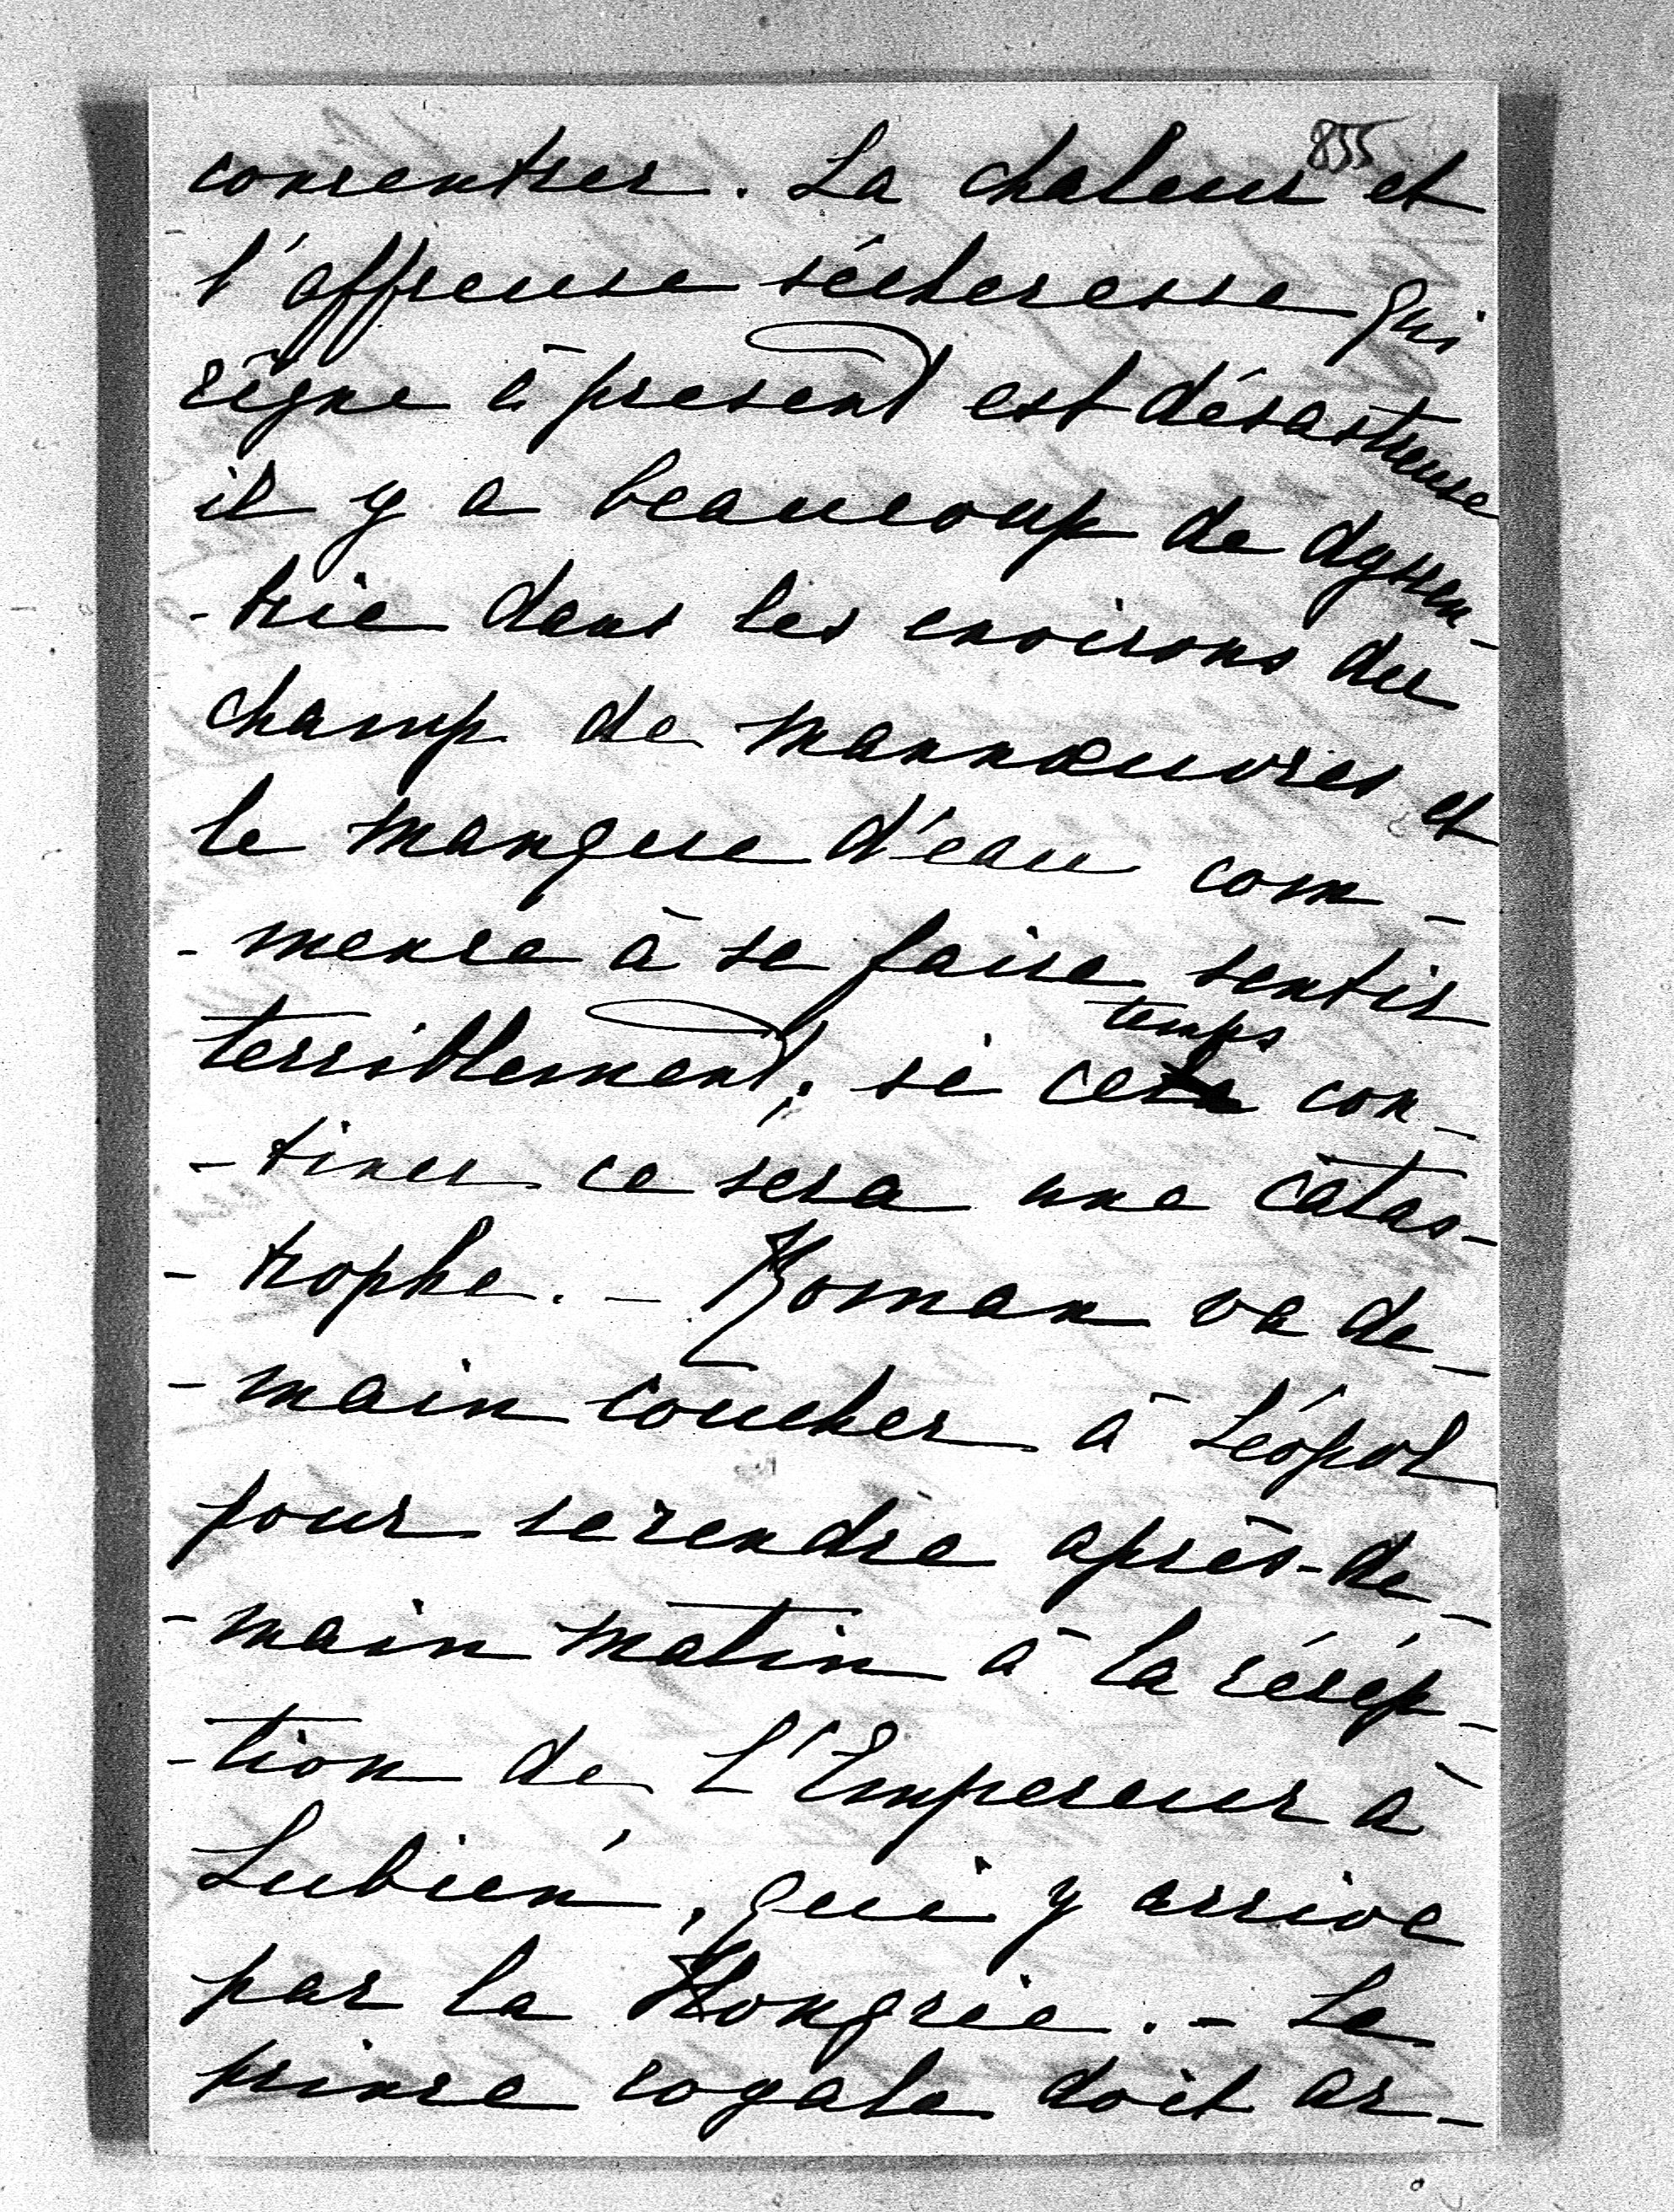 855
concentrer. La chaleur et
l'affreuse sécheresse qui
règne à présent est désastreuse
il y a beaucoup de dyssen-
-trie dans les environs du
champ de mannœuvres et
le manque d'eau com-
-mence à se faire sentir
temps
terriblement; si ce con-
-tinue ce sera une catas-
-trophe. - Roman va de-
-main coucher à Léopol
pour se rendre après-de-
-main matin à la récép-
-tion de L'Empereur à
Lubień, qui y arrive
par la Hongrie. - Le
prince royale doit ar-